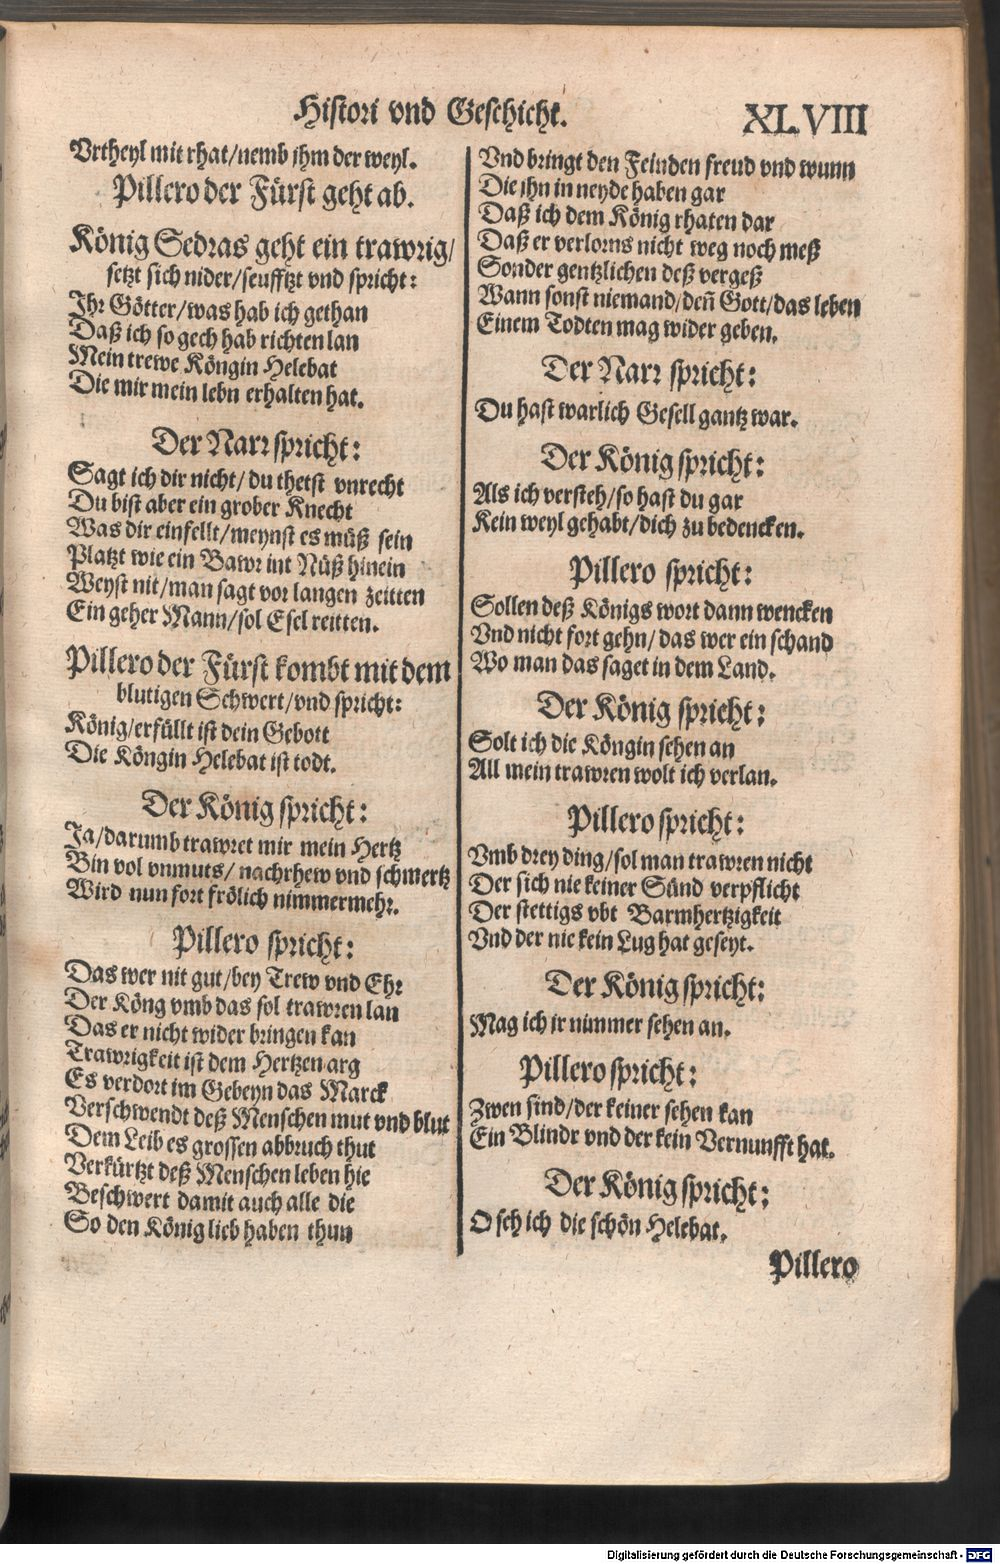 Histori vnd Geschicht.
XLVIII
Vrtheyl mit rhat/nemb jhm der weyl.
Pillero der Fürst geht ab.
König Sedras geht ein trawrig/
setzt sich nider/seufftzt vnd spricht:
Ihr Götter/was hab ich gethan
Daß ich so gech hab richten lan
Mein trewe Köngin Helebat
Die mir mein lebn erhalten hat.
Der Narr spricht:
Sagt ich dir nicht/du thetst vnrecht
Du bist aber ein grober Knecht
Was dir einfellt/meynst es müß sein
Platzt wie ein Bawr int Nüß hinein
Weyst nit/man sagt vor langen zeitten
Ein geher Mann/sol Esel reitten.
Pillero der Fürst kombt mit dem
blutigen Schwert/vnd spricht:
König/erfüllt ist dein Gebott
Die Köngin Helebat ist todt.
Der König spricht:
Ja/darumb trawret mir mein Hertz
Bin vol vnmuts/nachrhew vnd schmertz
Wird nun fort frölich nimmermehr.
Pillero spricht:
Das wer nit gut/bey Trew vnd Ehr
Der Köng vmb das sol trawren lan
Das er nicht wider bringen kan
Trawrigkeit ist dem Hertzen arg
Es verdort im Gebeyn das Marck
Verschwendt deß Menschen mut vnd blut
Dem Leib es grossen abbruch thut
Verkürtzt deß Menschen leben hie
Beschwert damit auch alle die
So den König lieb haben thun
Vnd bringt den Feinden freud vnd wunn
Die jhn in neyde haben gar
Daß ich dem König rhaten dar
Daß er verlorns nicht weg noch meß
Sonder gentzlichen deß vergeß
Wann sonst niemand/deñ Gott/das leben
Einem Todten mag wider geben.
Der Narr spricht:
Du hast warlich Gesell gantz war.
Der König spricht:
Als ich versteh/so hast du gar
Kein weyl gehabt/dich zu bedencken.
Pillero spricht:
Sollen deß Königs wort dann wencken
Vnd nicht fort gehn/das wer ein schand
Wo man das saget in dem Land.
Der König spricht:
Solt ich die Köngin sehen an
All mein trawren wolt ich verlan.
Pillero spricht:
Vmb drey ding/sol man trawren nicht
Der sich nie keiner Sünd verpflicht
Der stettigs vbt Barmhertzigkeit
Vnd der nie kein Lug hat geseyt.
Der König spricht:
Mag ich ir nimmer sehen an.
Pillero spricht:
Zwen sind/der keiner sehen kan
Ein Blindr vnd der kein Vernunfft hat.
Der König spricht:
O seh ich die schön Helebat.
Pillero
Digitalisierung gefördert durch die Deutsche Forschungsgemeinschaft - DFG